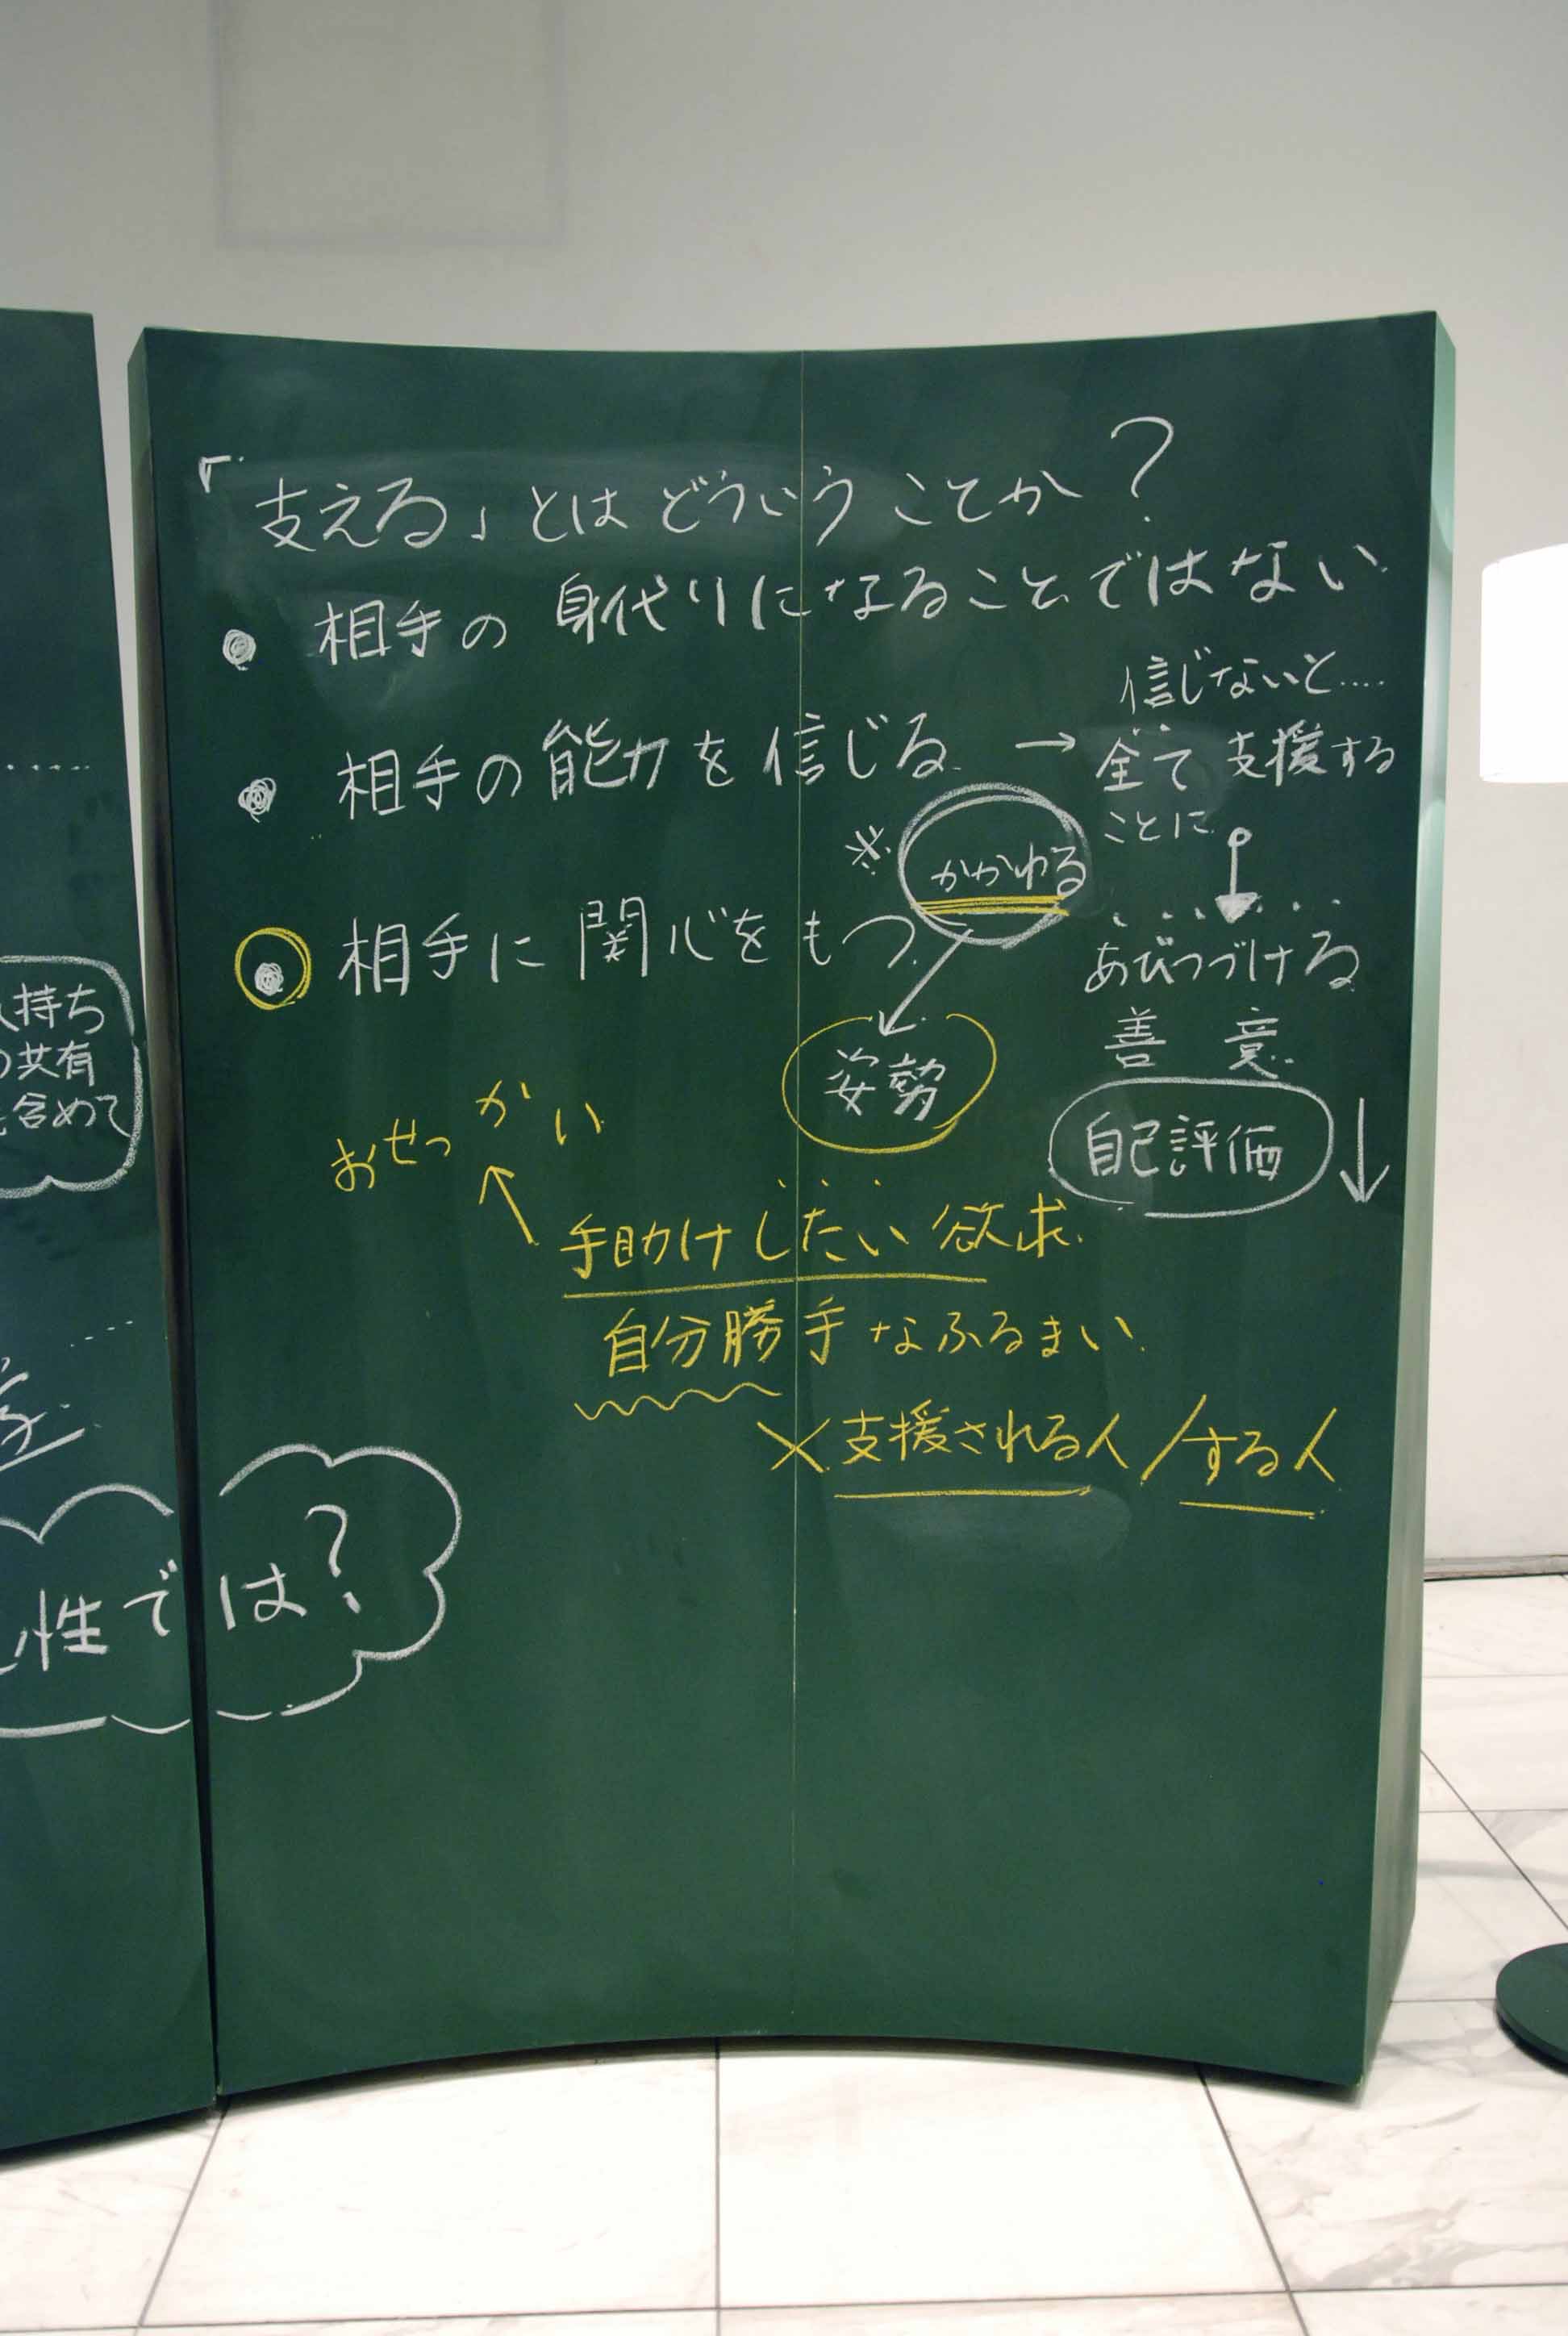 「支える」とはどういうことか?
● 相手の身代りになることではない
● 相手の能力を信じる → 信じないと....
全て支援する
ことに
あびつづける
善意
自己評価 ↓
● 相手に関心をもつ
※ かかわる
姿勢
おせっかい
手助けしたい欲求
自分勝手なふるまい
×支援される人/する人
持ち
共有
含めて
性では?